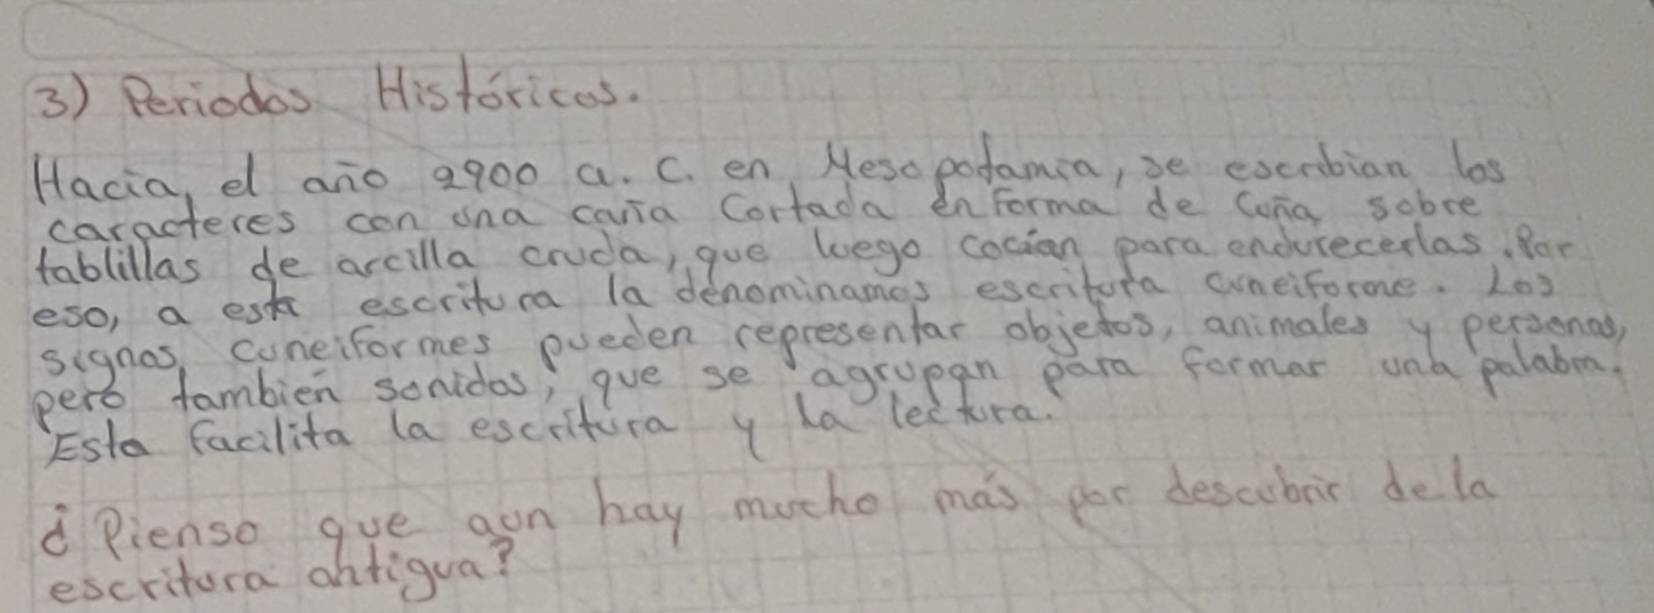 3) Periodos Históricos.
Hacia, el año 2900 a. C. en Mesopotamia, se escribian los
caracteres con una caña Cortada en Forma de Cuña sobre
tablillas de arcilla cruda, que luego cocían para endurecerlas. Por
eso, a esta escritura la denominamos escritura cuneiforme. Los
signos cuneiformes pueden representar objetos, animales y personas,
pero tambien sonidos, que se agrupan para formar una palabra.
Esto facilita la escritura y la lectura.
¿Pienso que aun hay mucho más por descubrir de la
escritura antigua?